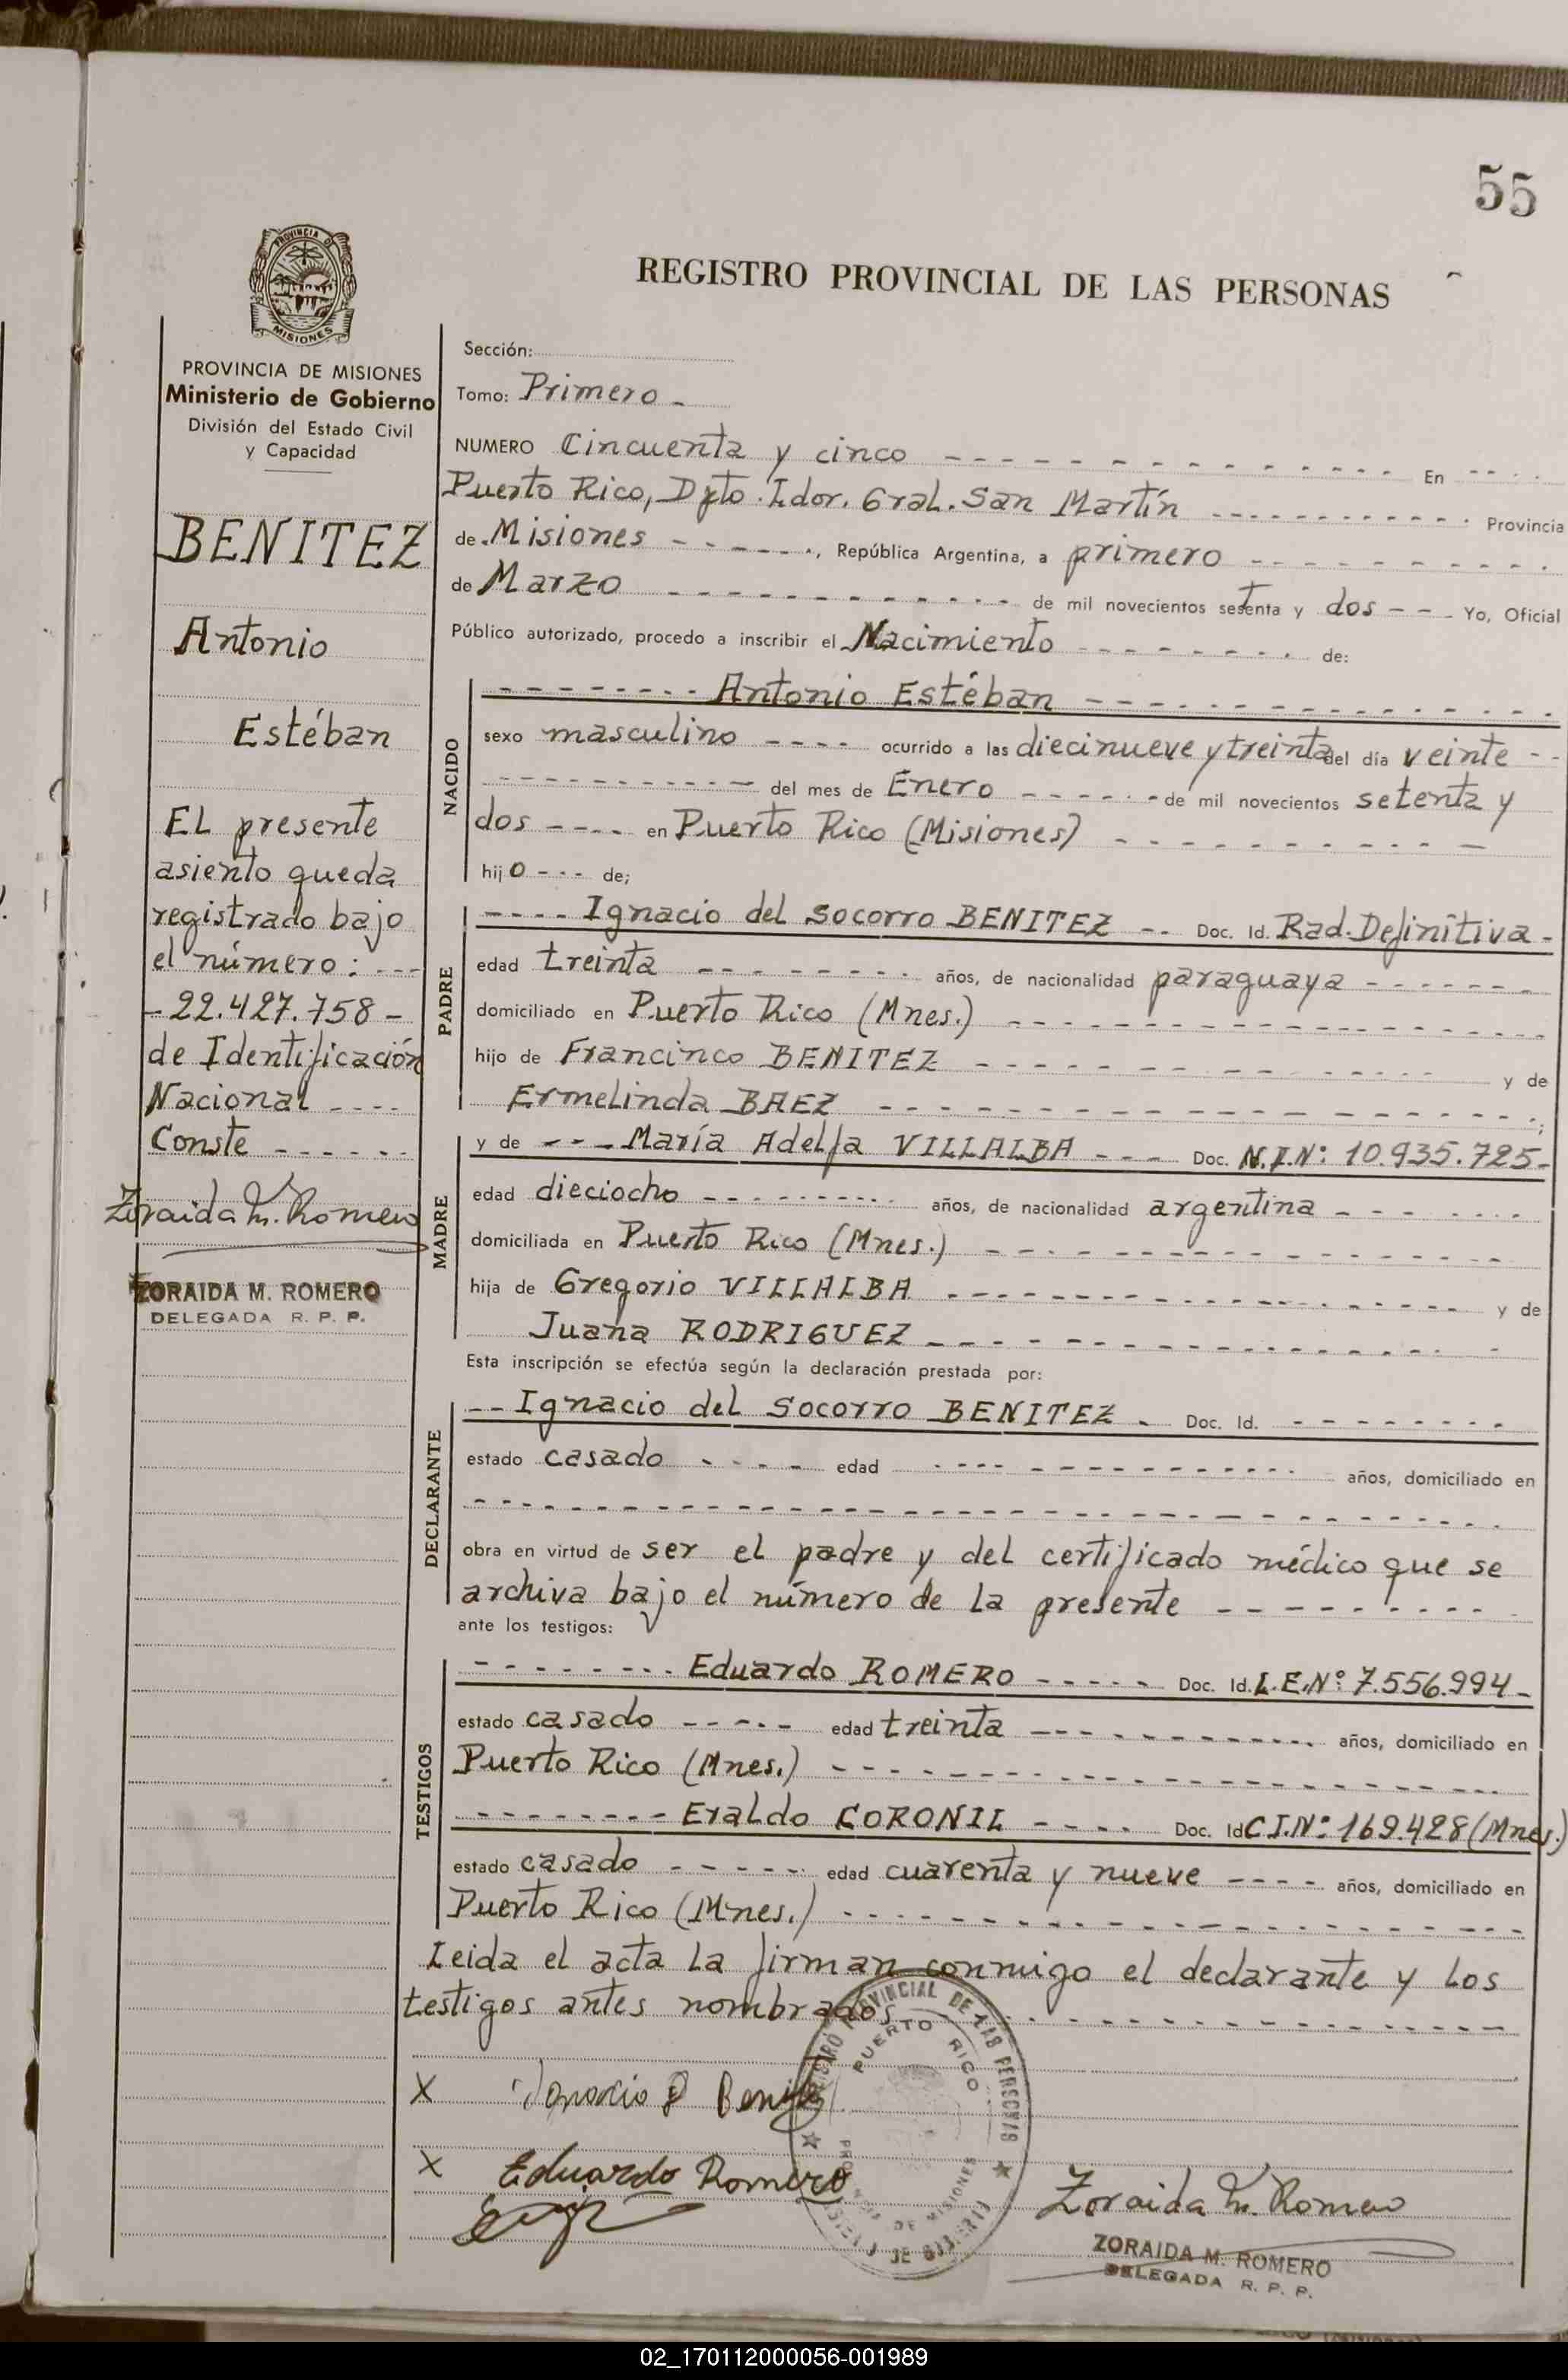 55
REGISTRO PROVINCIAL DE LAS PERSONAS
PROVINCIA DE
MISIONES
PROVINCIA DE MISIONES
Ministerio de Gobierno
División del Estado Civil
y Capacidad
BENITEZ
Antonio
Estéban
EL presente
asiento queda
registrado bajo
el número: ---
- 22.427.758 -
de Identificación
Nacional ----
Conste ------
Zoraida M. Romero
ZORAIDA M. ROMERO
DELEGADA R. P. P.
Sección:
Tomo: Primero -
NUMERO Cincuenta y cinco --- En ---
Puerto Rico, Dpto. Ldor. Gral. San Martín --- Provincia
de Misiones ---, República Argentina, a primero ---
de Marzo --- de mil novecientos setenta y dos --- Yo, Oficial
Público autorizado, procedo a inscribir el Nacimiento --- de:
NACIDO
--- Antonio Estéban ---
sexo masculino ---- ocurrido a las diecinueve y treinta del día veinte --
--- del mes de Enero --- de mil novecientos setenta y
dos ---- en Puerto Rico (Misiones) ---
hijo --- de;
PADRE
---- Ignacio del Socorro BENITEZ -- Doc. Id. Rad. Definitiva -
edad treinta --- años, de nacionalidad paraguaya ---
domiciliado en Puerto Rico (Mnes.) ---
hijo de Francinco BENITEZ --- y de
Ermelinda BAEZ ---;
MADRE
y de --- María Adelfa VILLALBA --- Doc. N.I.N°: 10.935.725-
edad dieciocho --- años, de nacionalidad argentina ---
domiciliada en Puerto Rico (Mnes.) ---
hija de Gregorio VILLALBA --- y de
Juana RODRIGUEZ ---
Esta inscripción se efectúa según la declaración prestada por:
DECLARANTE
-- Ignacio del Socorro BENITEZ - Doc. Id. ---
estado casado ---- edad --- años, domiciliado en
---
obra en virtud de ser el padre y del certificado médico que se
archiva bajo el número de la presente ---
ante los testigos:
TESTIGOS
--- Eduardo ROMERO --- Doc. Id. L.E.N°: 7.556.994-
estado casado ----- edad treinta --- años, domiciliado en
Puerto Rico (Mnes.) ---
--- Eraldo CORONIL ---- Doc. Id C.I.N°: 169.428 (Mnes.)
estado casado ------ edad cuarenta y nueve ---- años, domiciliado en
Puerto Rico (Mnes.) ---
Leida el acta la firman conmigo el declarante y los
testigos antes nombrados ---
REGISTRO PROVINCIAL DE LAS PERSONAS
PUERTO RICO
PROVINCIA DE MISIONES
X Ignacio S Benitez
X Eduardo Romero
Zoraida M. Romero
ZORAIDA M. ROMERO
DELEGADA R. P. P.
02_170112000056-001989